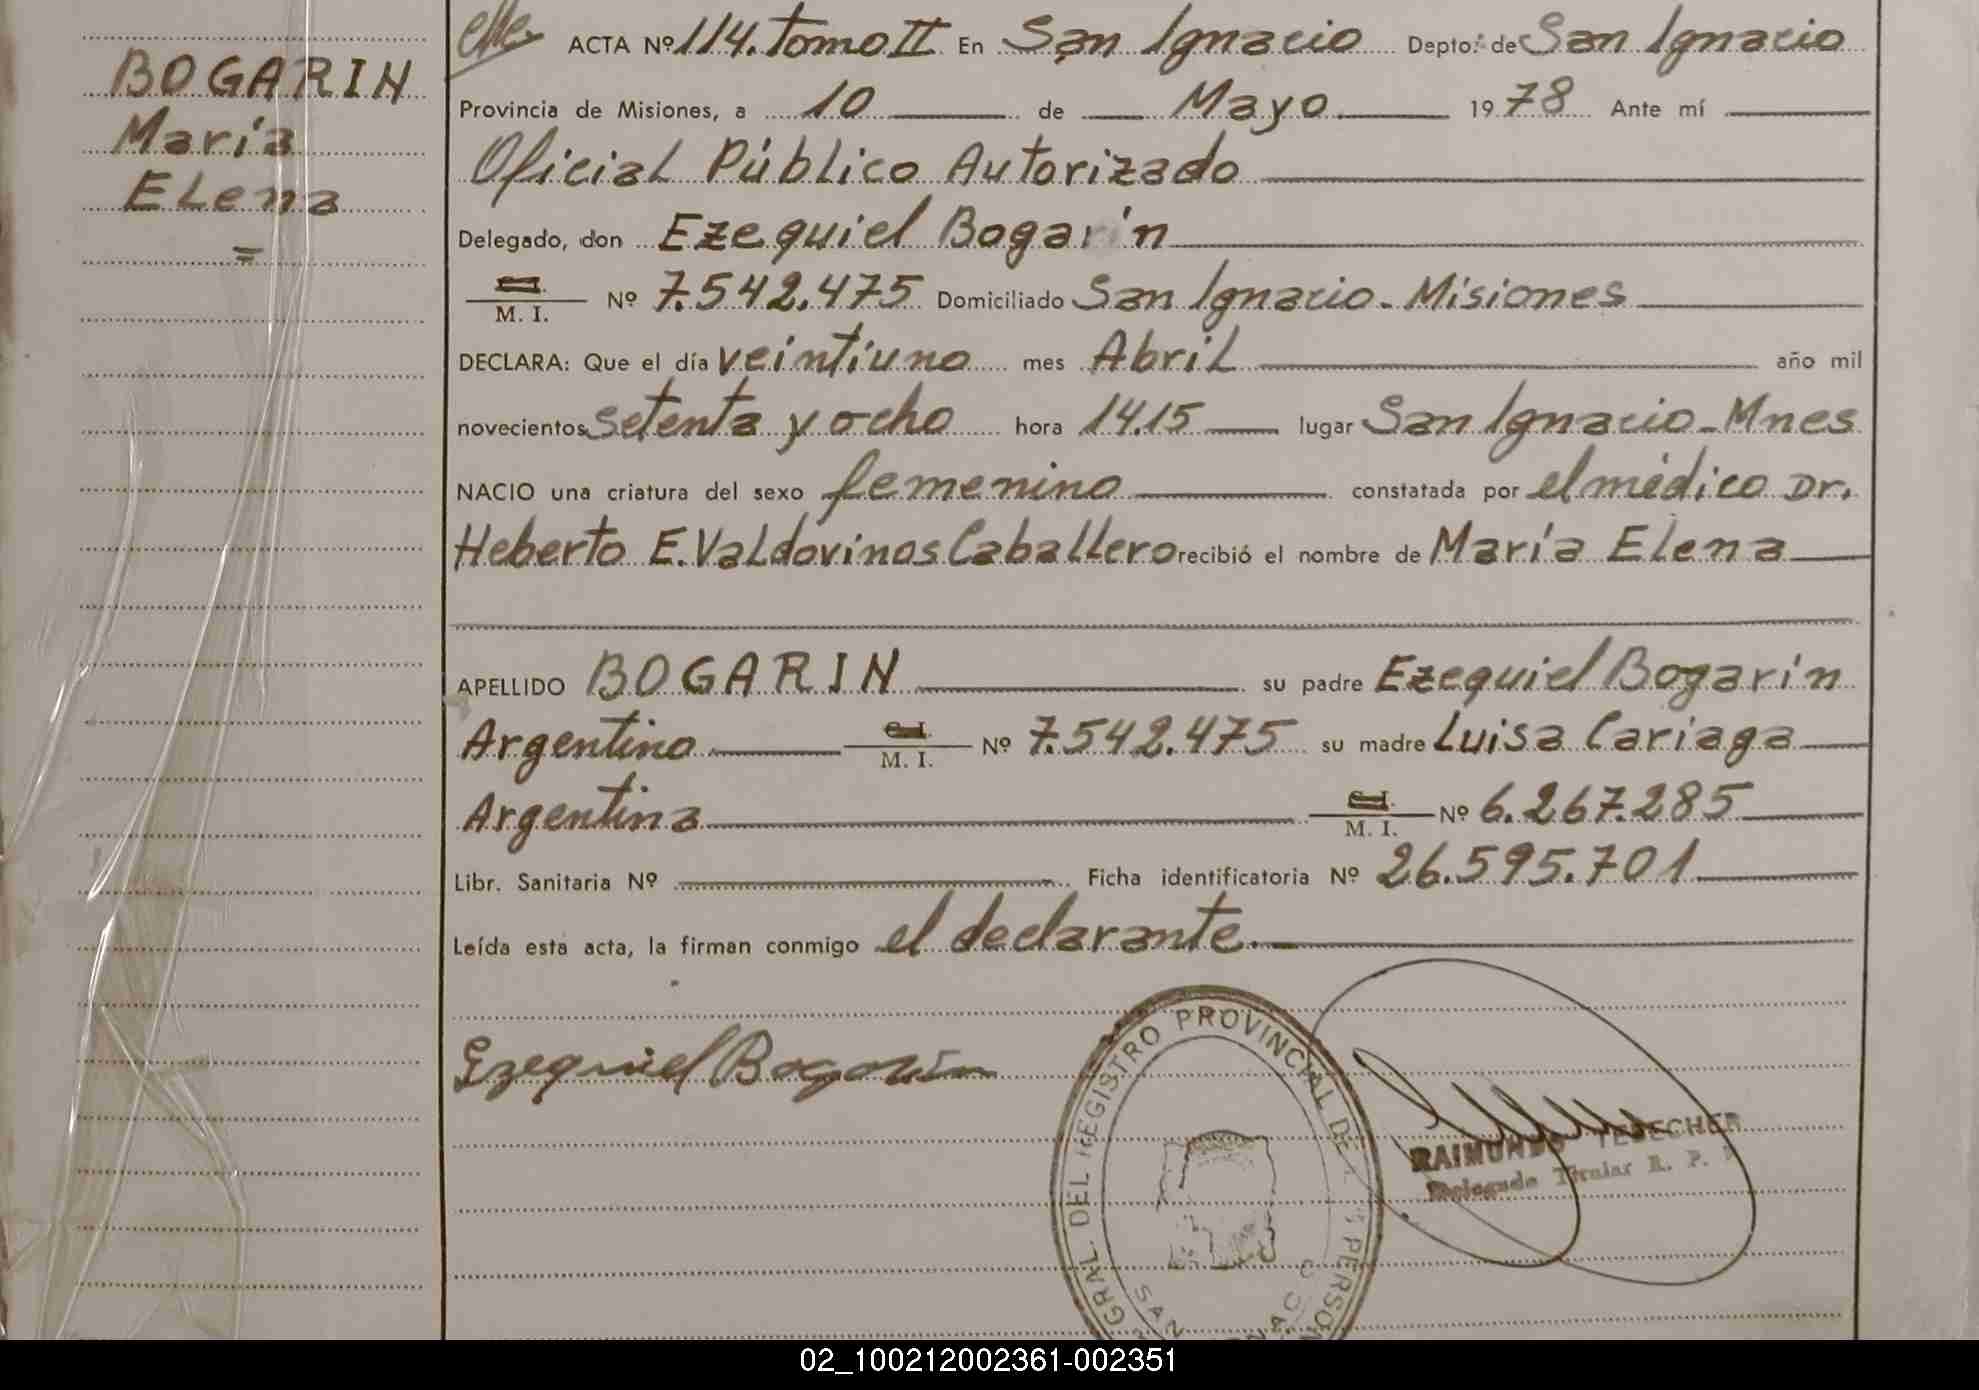 BOGARIN
María
Elena
=
ACTA Nº 114. Tomo II En San Ignacio Depto: de San Ignacio
Provincia de Misiones, a 10 de Mayo 1978 Ante mí
Oficial Público Autorizado
Delegado, don Ezequiel Bogarín
M. I. Nº 7.542.475 Domiciliado San Ignacio - Misiones
DECLARA: Que el día veintiuno mes Abril año mil
novecientos setenta y ocho hora 14.15 lugar San Ignacio - Mnes
NACIO una criatura del sexo femenino constatada por el médico Dr.
Heberto E. Valdovinos Caballero recibió el nombre de María Elena
APELLIDO BOGARIN su padre Ezequiel Bogarín
Argentino C. I. M. I. Nº 7.542.475 su madre Luisa Cariaga
Argentina C. I. M. I. Nº 6.267.285
Libr. Sanitaria Nº Ficha identificatoria Nº 26.595.701
Leída esta acta, la firman conmigo el declarante.
Ezequiel Bogarín
GRAL. DEL REGISTRO PROVINCIAL DE
SAN
RAIMUNDO
Delegado Titular R. P.
02_100212002361-002351